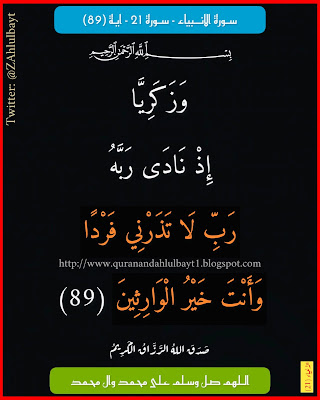 سورة الانبياء - سورة 21 - اية (89)
بِسْمِ اللَّهِ الرَّحْمَٰنِ الرَّحِيمِ
وَزَكَرِيَّا
إِذْ نَادَى رَبَّهُ
رَبِّ لَا تَذَرْنِي فَرْدًا
http://www.quranandahlulbayt1.blogspot.com
وَأَنْتَ خَيْرُ الْوَارِثِينَ (89)
صَدَقَ اللهُ الرَّزَّاقُ الْكَرِيمُ
اللهم صل وسلم على محمد وال محمد
Twitter: @ZAhlulbayt